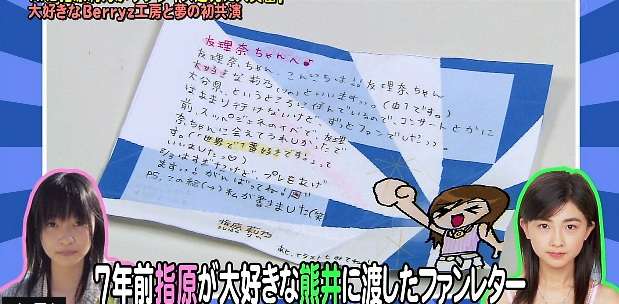 大好きなBerryz工房と夢の初共演
友理奈ちゃんへ♪
友理奈ちゃん、こんにちは!!友理奈ちゃん
大好きな莉乃(りの)といいます。(中1です。)
大分県というところに住んでいるので、コンサートとかに
はあまり行けないけど、ずっとファンでした!
前、スッペジェネのイベで、友理
奈ちゃんに会えてうれしかったで
す。「世界で1番好きです!」って
いいました。
ますっ!がんばってね!
P.S.この絵(→)私が書きました(笑)
指原莉乃
7年前指原が大好きな熊井に渡したファンレター